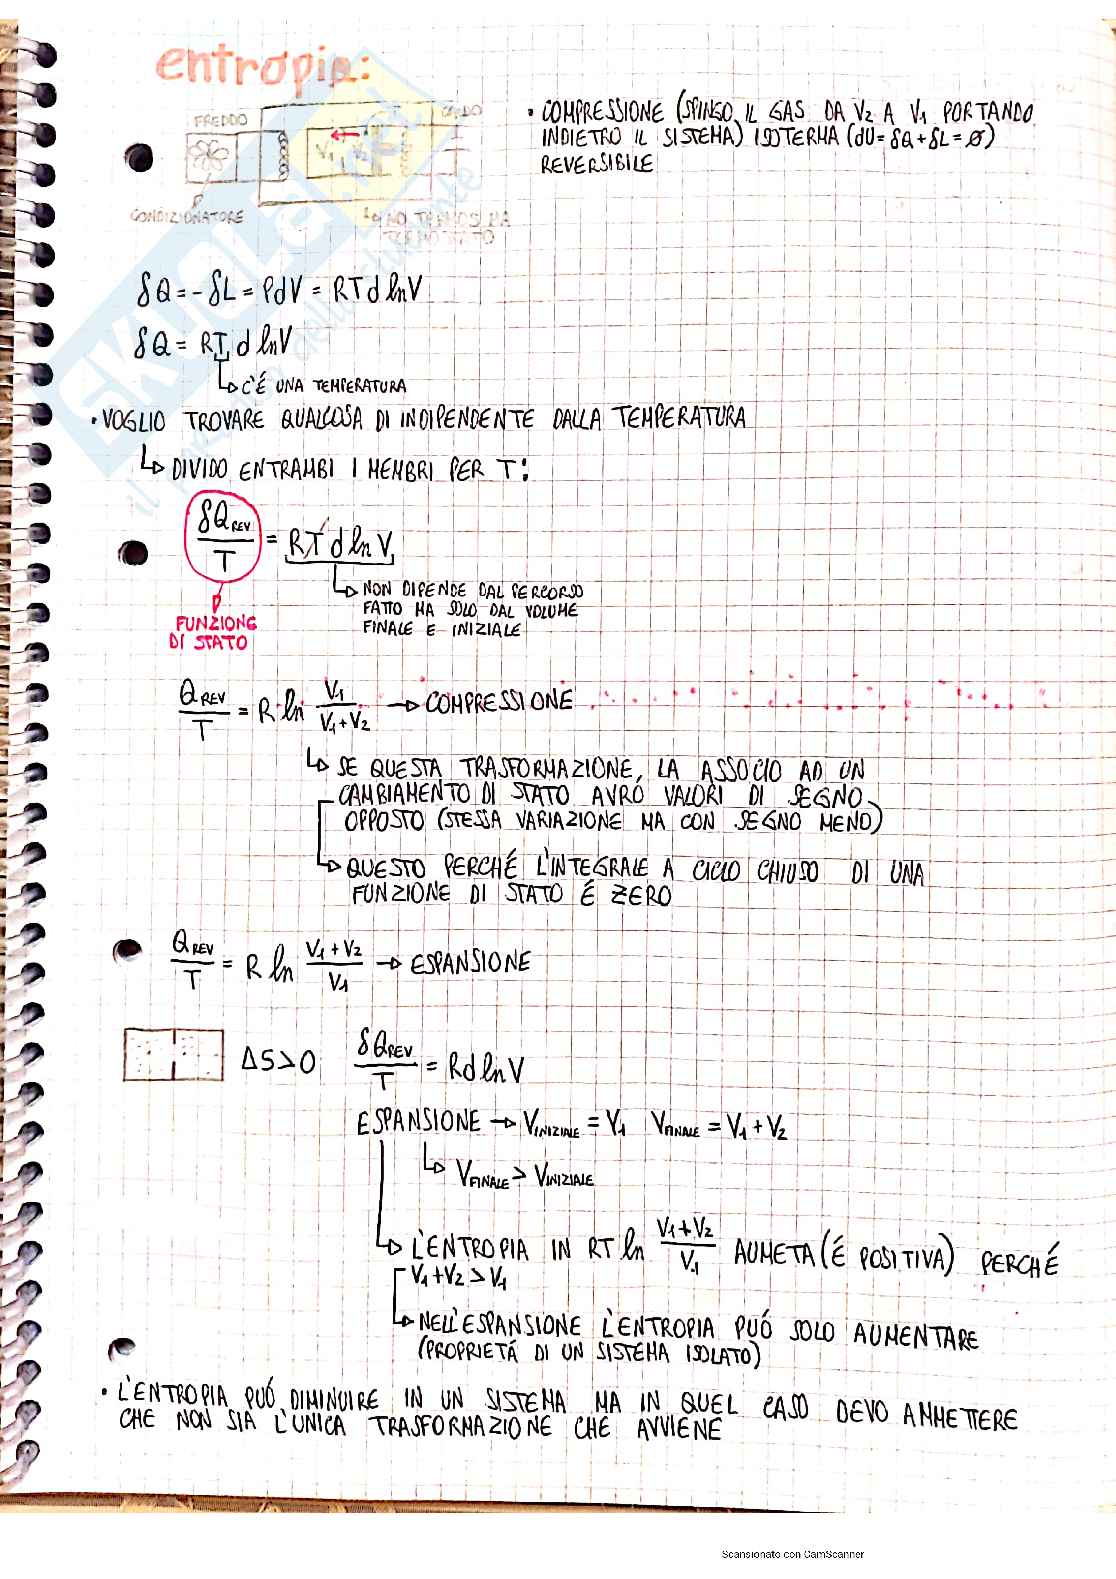 entropia:
FREDDO
CALDO
V1
V2
CONDIZIONATORE
NO TERMOSI MA
TERMOSTATO
• COMPRESSIONE (SPINGO IL GAS DA V2 A V1 PORTANDO
INDIETRO IL SISTEMA) ISOTERMA (dU = δQ + δL = 0)
REVERSIBILE
δQ = - δL = PdV = RT d lnV
δQ = RT d lnV
↳ C'É UNA TEMPERATURA
• VOGLIO TROVARE QUALCOSA DI INDIPENDENTE DALLA TEMPERATURA
↳ DIVIDO ENTRAMBI I MEMBRI PER T:
δQREV / T = RT d ln V
↳ NON DIPENDE DAL PERCORSO
FATTO MA SOLO DAL VOLUME
FINALE E INIZIALE
FUNZIONE
DI STATO
QREV / T = R ln V1 / V1 + V2 → COMPRESSIONE
↳ SE QUESTA TRASFORMAZIONE, LA ASSOCIO AD UN
CAMBIAMENTO DI STATO AVRÓ VALORI DI SEGNO
OPPOSTO (STESSA VARIAZIONE MA CON SEGNO MENO)
↳ QUESTO PERCHÉ L'INTEGRALE A CICLO CHIUSO DI UNA
FUNZIONE DI STATO É ZERO
QREV / T = R ln V1 + V2 / V1 → ESPANSIONE
ΔS>0 δQREV / T = Rd lnV
ESPANSIONE → VINIZIALE = V1 VFINALE = V1 + V2
↳ VFINALE > VINIZIALE
↳ L'ENTROPIA IN RT ln V1+V2 / V1 AUMETA (É POSITIVA) PERCHÉ
V1+V2 > V1
↳ NELL'ESPANSIONE L'ENTROPIA PUÓ SOLO AUMENTARE
(PROPRIETÁ DI UN SISTEMA ISOLATO)
• L'ENTROPIA PUÓ DIMINUIRE IN UN SISTEMA MA IN QUEL CASO DEVO AMMETTERE
CHE NON SIA L'UNICA TRASFORMAZIONE CHE AVVIENE
Scansionato con CamScanner